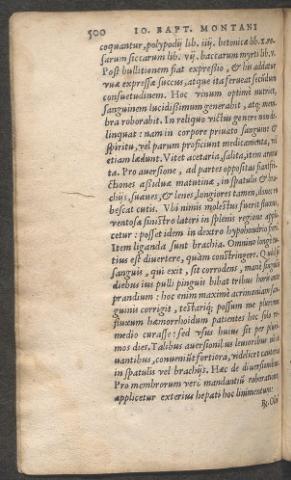 500 IO. BAPT. MONTANI
coquantur, polypodij lib. iiij. betonicæ lib. x. ro-
sarum siccarum lib. vij. baccarum myrti lib. v.
Post bullitionem fiat expreßio, & his addatur
vuæ expressæ succus, atque ita ferueat secũdum
consuetudinem. Hoc vinum optimè nutriet,
sanguinem lucidißimum generabit, atq; mem-
bra roborabit. In reliquo victus genere non de-
linquat: nam in corpore priuato sanguine &
spiritu, vel parum proficiunt medicamenta, vel
etiam lædunt. Vitet acetaria, salita, item
ta. Pro auersione, ad partes oppositas fiant fri-
ctiones aßiduæ matutinæ, in spatulis & bra-
chijs, suaues, & lenes, longiores tamen, donec ru-
bescat cutis. Vbi nimis molestus fuerit fluxus,
ventosa sinistro lateri in splenis regione appli-
cetur: posset idem in dextro hypohondrio fieri.
Item liganda sunt brachia. Omnino longè tu-
tius est diuertere, quàm constringere. Quòd si
sanguis, qui exit, sit corrodens, manè singulis
diebus ius pulli pinguis bibat tribus horis ante
prandium: hoc enim maximè acrimoniam san-
guinis corrigit, testariq; possum me plurimos
fluxum hæmorrhoidum patientes hoc solo re-
medio curasse: sed vsus huius sit per pluri-
mos dies. Talibus auersionibus leuioribus
uantibus, conueniũt fortiora, videlicet
in spatulis vel brachijs. Hæc de diuersionibus.
Pro membrorum verò mandantiũ roboratione,
applicetur exterius hepati hoc linimentum:
℞. Olei